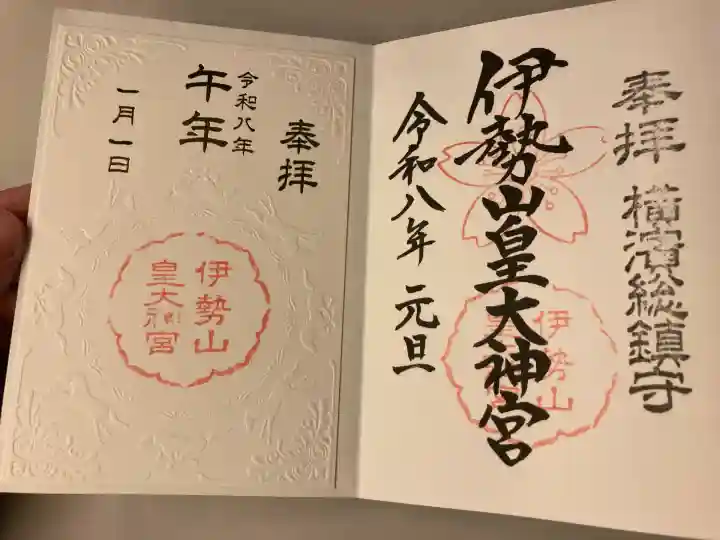 奉拝
令和八年
午年
一月一日
伊勢山
皇大神宮
奉拝
横濱総鎮守
伊勢山皇大神宮
令和八年 一元旦
伊勢山